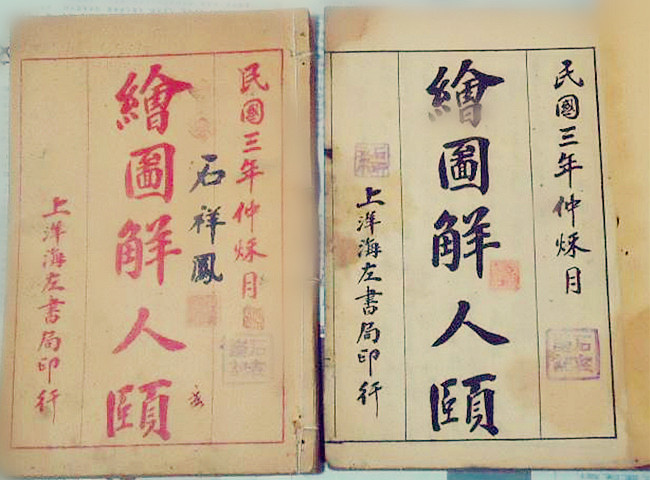 民國三年仲烁月
石祥鳳
繪圖解人頤
上洋海左書局印行
民國三年仲烁月
繪圖解人頤
上洋海左書局印行